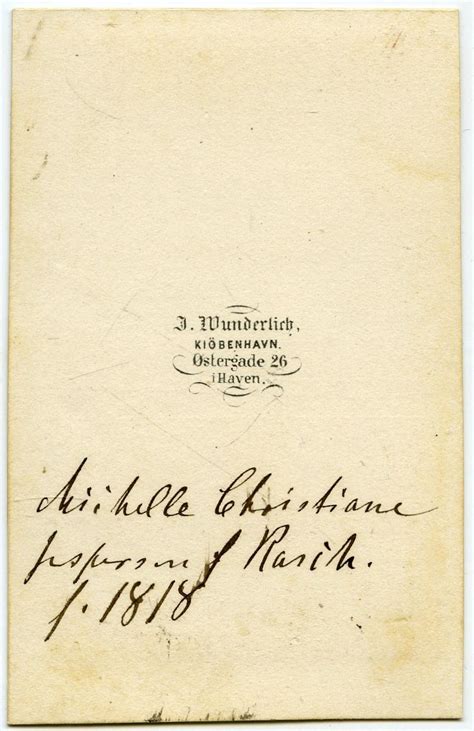 J. Wunderlich,
KIÖBENHAVN.
Østergade 26
i Haven.
Michelle Christiane
Jespersen f Rasch.
f. 1818